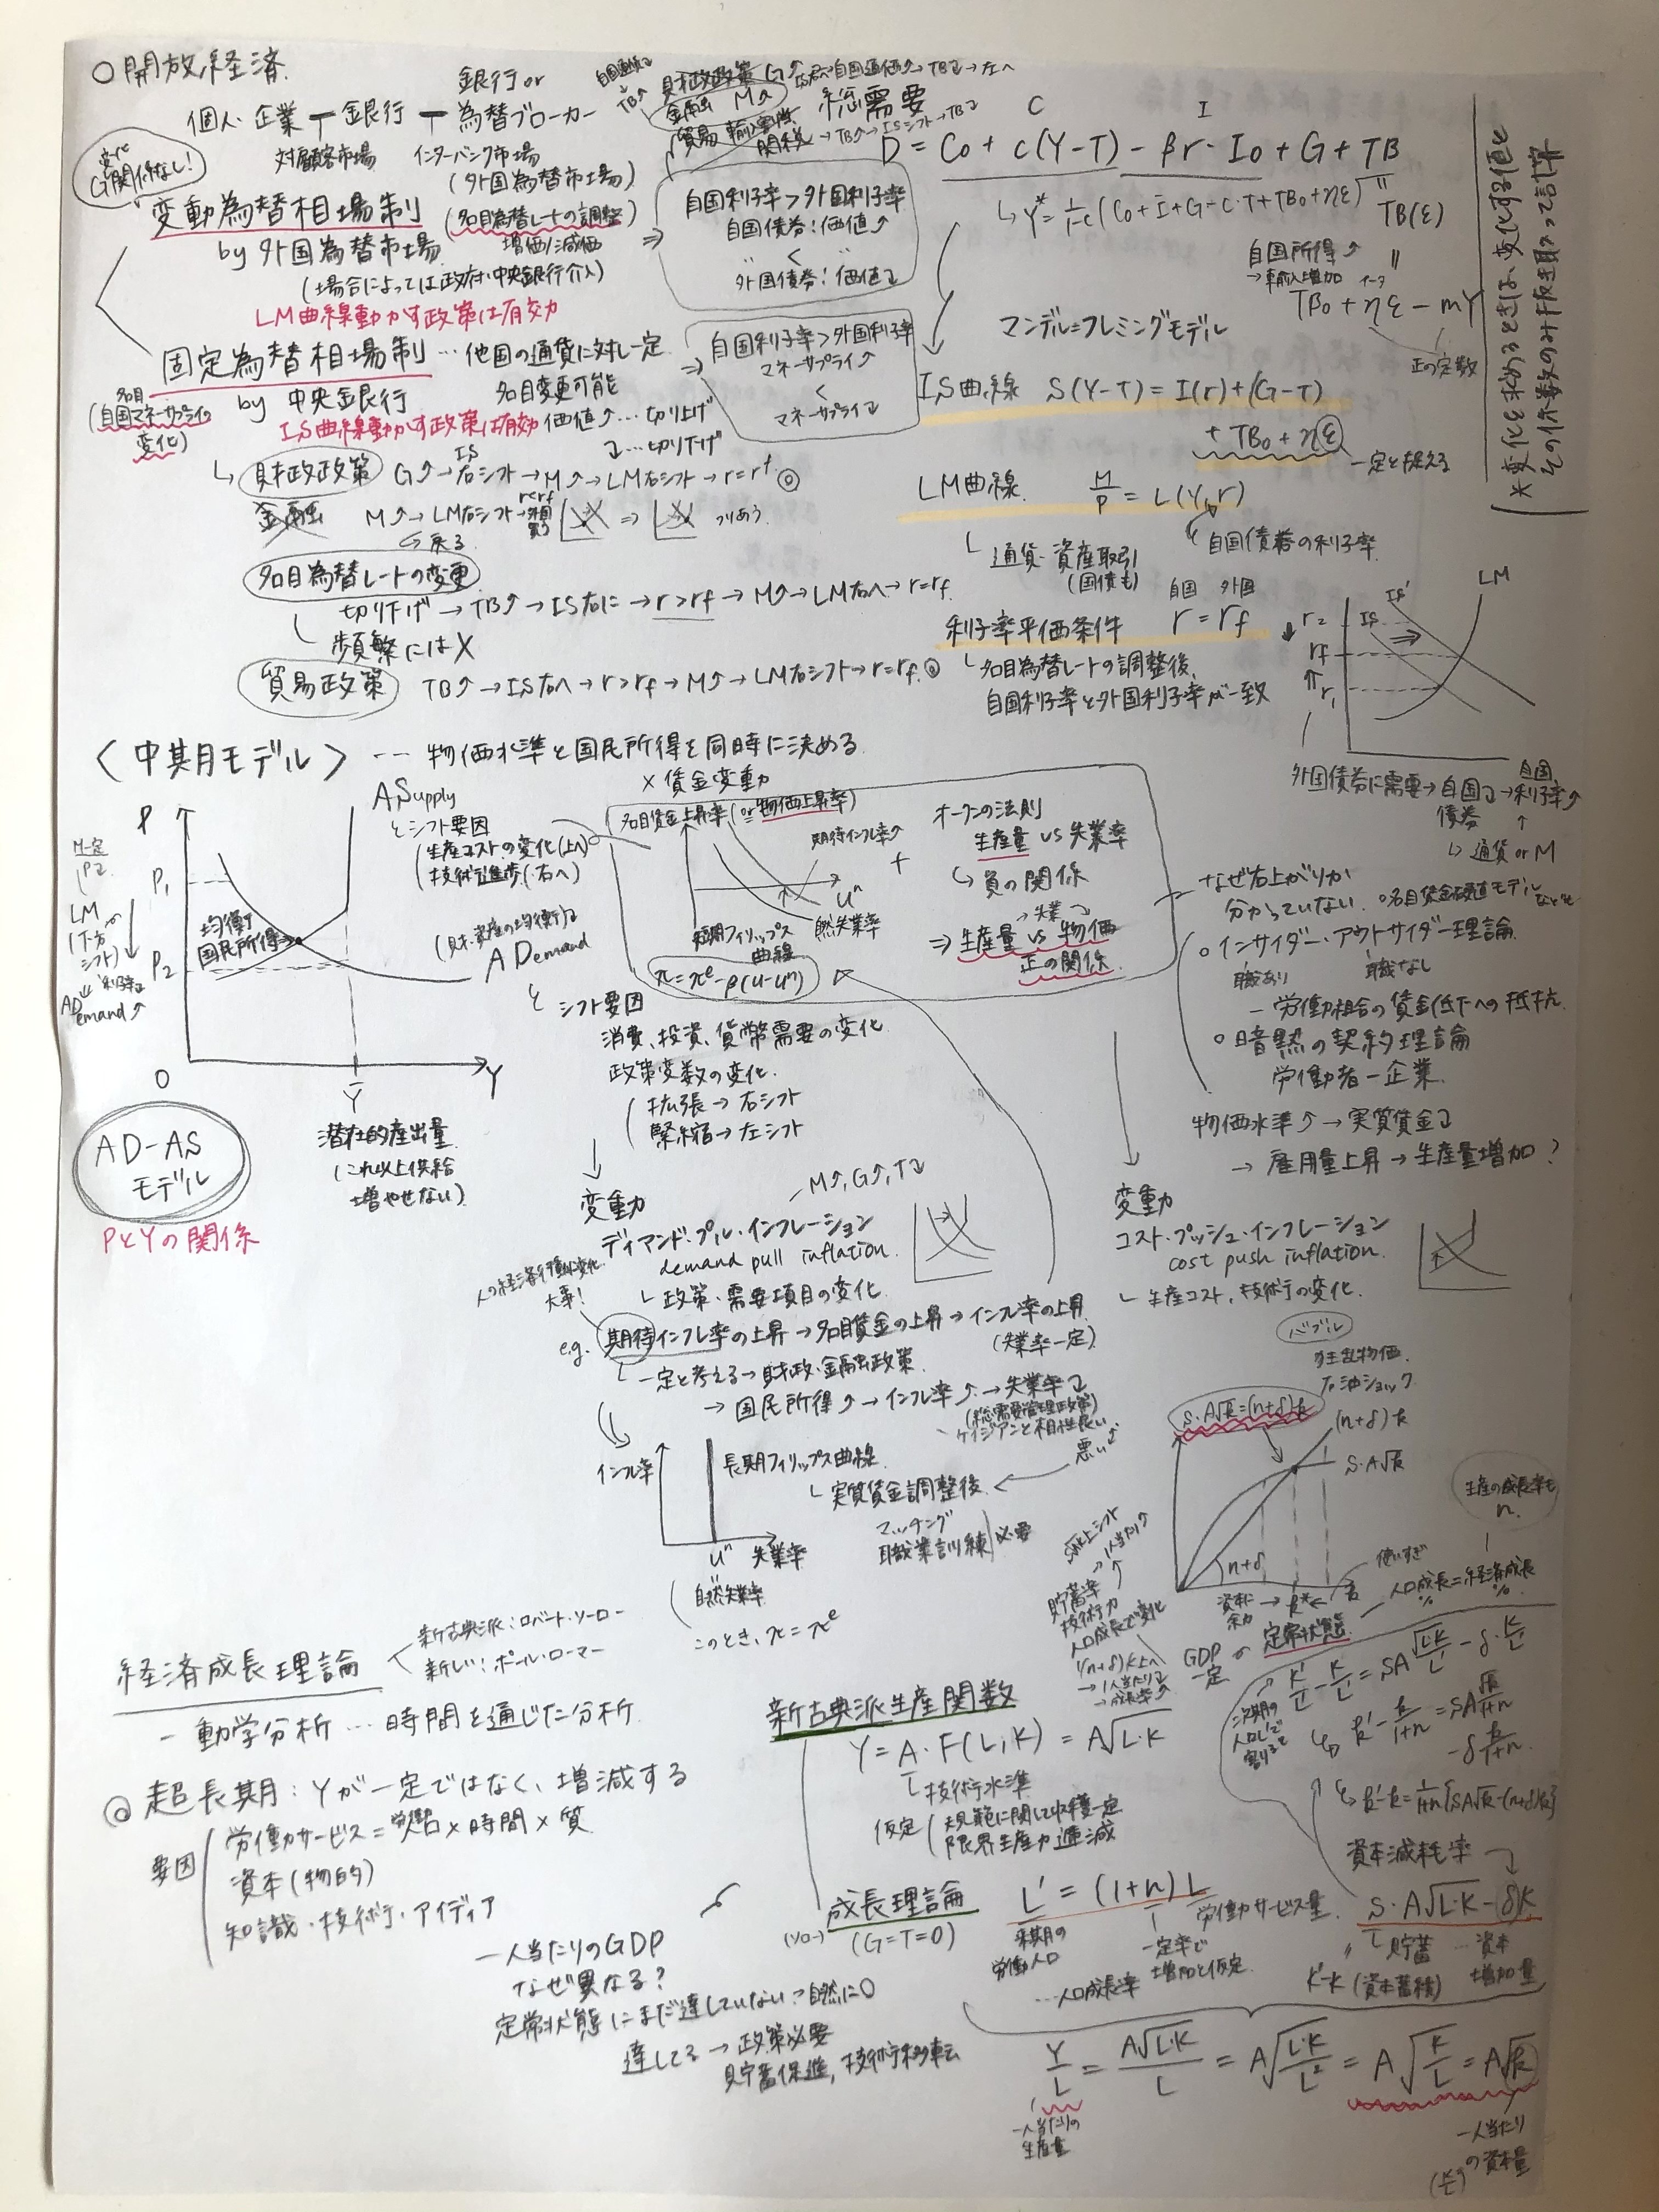 ○開放経済
個人・企業 ― 銀行 ― 銀行or為替ブローカー
対顧客市場 インターバンク市場
(外国為替市場)
変動為替相場制
(名目為替レートの調整)
増価/減価
by 外国為替市場
(場合によっては政府・中央銀行介入)
LM曲線動かす政策は有効
固定為替相場制 … 他国の通貨に対し一定
名目変更可能
(自国マネーサプライの変化)
by 中央銀行
IS曲線動かす政策は有効
価値↑…切り上げ
↓…切り下げ
財政政策 G↑→IS右シフト→M↑→LM右シフト→r=rf ◎
金融 M↑→LM右シフト→
戻る
つりあう
名目為替レートの変更
切り下げ→TB↑→IS右に→r>rf→M↑→LM右へ→r=rf
頻繁には×
貿易政策 TB↑→IS右へ→r>rf→M↑→LM右シフト→r=rf ◎
財政政策 G↑
金融 M↑
貿易
関税→TB↑→ISシフト→TB↓
自国利子率>外国利子率
自国債券:価値↑
<
外国債券:価値↓
自国利子率>外国利子率
マネーサプライ↑
<
マネーサプライ↓
総需要
C I
D = C0 + c(Y-T) - βr - I0 + G + TB
TB(ε)
自国所得↑
→輸入増加
TB0 + ηε - mY
正の定数
マンデル=フレミングモデル
IS曲線 S(Y-T) = I(r) + (G-T)
+ TB0 + ηε
一定と捉える
LM曲線 M/P = L(Y, r)
通貨・資産取引
(国債も)
自国債券の利子率
自国 外国
利子率平価条件 r = rf
名目為替レートの調整後、
自国利子率と外国利子率が一致
LM
IS'
IS
r2
rf
r1
外国債券に需要→自国債券↓→自国利子率↑
通貨orM
*変化を求めるときは、変化する値と
その係数のみ抜き取って計算
<中期モデル> … 物価水準と国民所得を同時に決める
×賃金変動
P
P1
P2
O
Y
Ȳ
均衡
国民所得
ASupply
シフト要因
生産コストの変化(上へ)
技術進歩(右へ)
(財・資産の均衡)
ADemand
シフト要因
消費、投資、貨幣需要の変化
政策変数の変化
拡張→右シフト
緊縮→左シフト
潜在的産出量
(これ以上供給
増やせない)
AD-AS
モデル
PとYの関係
名目賃金上昇率(or物価上昇率)
期待インフレ率↑
短期フィリップス曲線
自然失業率
π=πe-β(u-un)
オークンの法則
生産量 vs 失業率
負の関係
⇒生産量 vs 物価
正の関係
なぜ右上がりか
分かっていない
○名目賃金硬直モデル
○インサイダー・アウトサイダー理論
職あり 職なし
― 労働組合の賃金低下への抵抗
○暗黙の契約理論
労働者―企業
物価水準↑→実質賃金↓
→雇用量上昇→生産量増加?
変動
M↑, G↑, T↓
ディマンド・プル・インフレーション
demand pull inflation
政策・需要項目の変化
大事!
e.g. 期待インフレ率の上昇→名目賃金の上昇→インフレ率の上昇
(失業率一定)
一定と考える→財政・金融政策
→国民所得↑→インフレ率↑→失業率↓
(総需要管理政策)
ケイジアンと相性良い
悪い
変動
コスト・プッシュ・インフレーション
cost push inflation
生産コスト、技術の変化
バブル
狂乱物価
石油ショック
インフレ率
長期フィリップス曲線
実質賃金調整後
マッチング
職業訓練
必要
un 失業率
自然失業率
このとき、π=πe
s・A√k=(n+δ)k
(n+δ)k
s・A√k
n+δ
k*
k
生産の成長率も
n
人口成長=経済成長
GDP
一定
定常状態
貯蓄率
技術力
人口成長で変化
経済成長理論
新古典派:ロバート・ソーロー
新しい:ポール・ローマー
― 動学分析 … 時間を通じた分析
◎超長期:Yが一定ではなく、増減する
要因
労働力サービス=労働人口×時間×質
資本(物的)
知識・技術・アイディア
一人当たりのGDP
なぜ異なる?
定常状態にまだ達していない?自然に○
達してる→政策必要
貯蓄促進、技術移転
新古典派生産関数
Y = A・F(L,K) = A√L・K
技術水準
仮定
規範に関して収穫一定
限界生産力逓減
成長理論
(G=T=0)
L' = (1+n)L
来期の
労働人口
一定率で
増加と仮定
労働力サービス量
…人口成長率
K'/L' - K/L' = sA√LK/L' - δ・K/L'
次期の
人口L'で
割ると
k' - k/1+n = sA√k/1+n - δ k/1+n
k'-k = 1/1+n {sA√k-(n+δ)k}
資本減耗率
s・A√L・K - δK
貯蓄
資本
増加量
K'-K (資本蓄積)
Y/L = A√L・K/L = A√L・K/L² = A√K/L = A√k
一人当たりの
生産量
一人当たり
の資本量
(K/L)